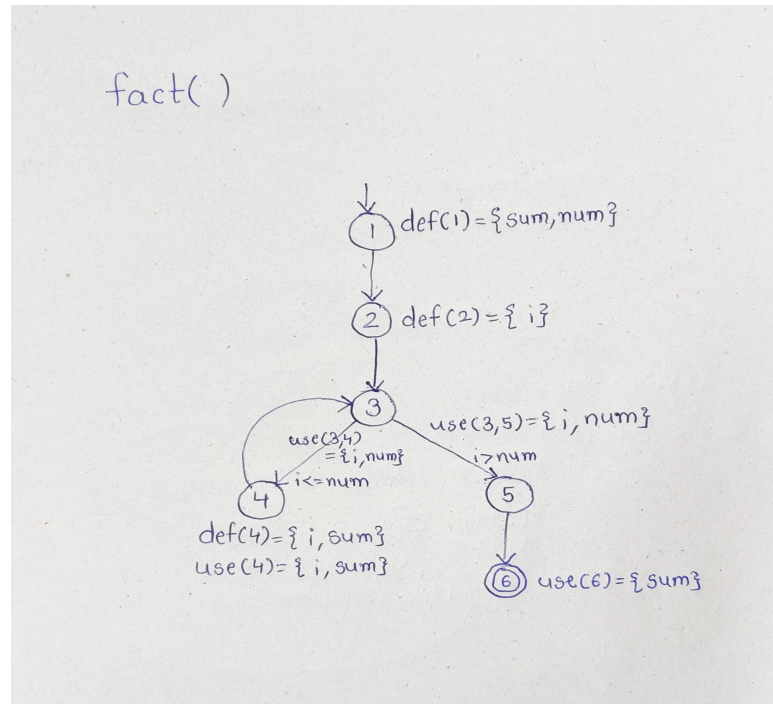 fact( )
1 def(1)={sum,num}
2 def(2)={ i}
3
use(3,5)={i,num}
use(3,4)
={i,num}
i>num
i<=num
4
5
def(4)={ i, sum}
use(4)={ i, sum}
6 use(6)={sum}